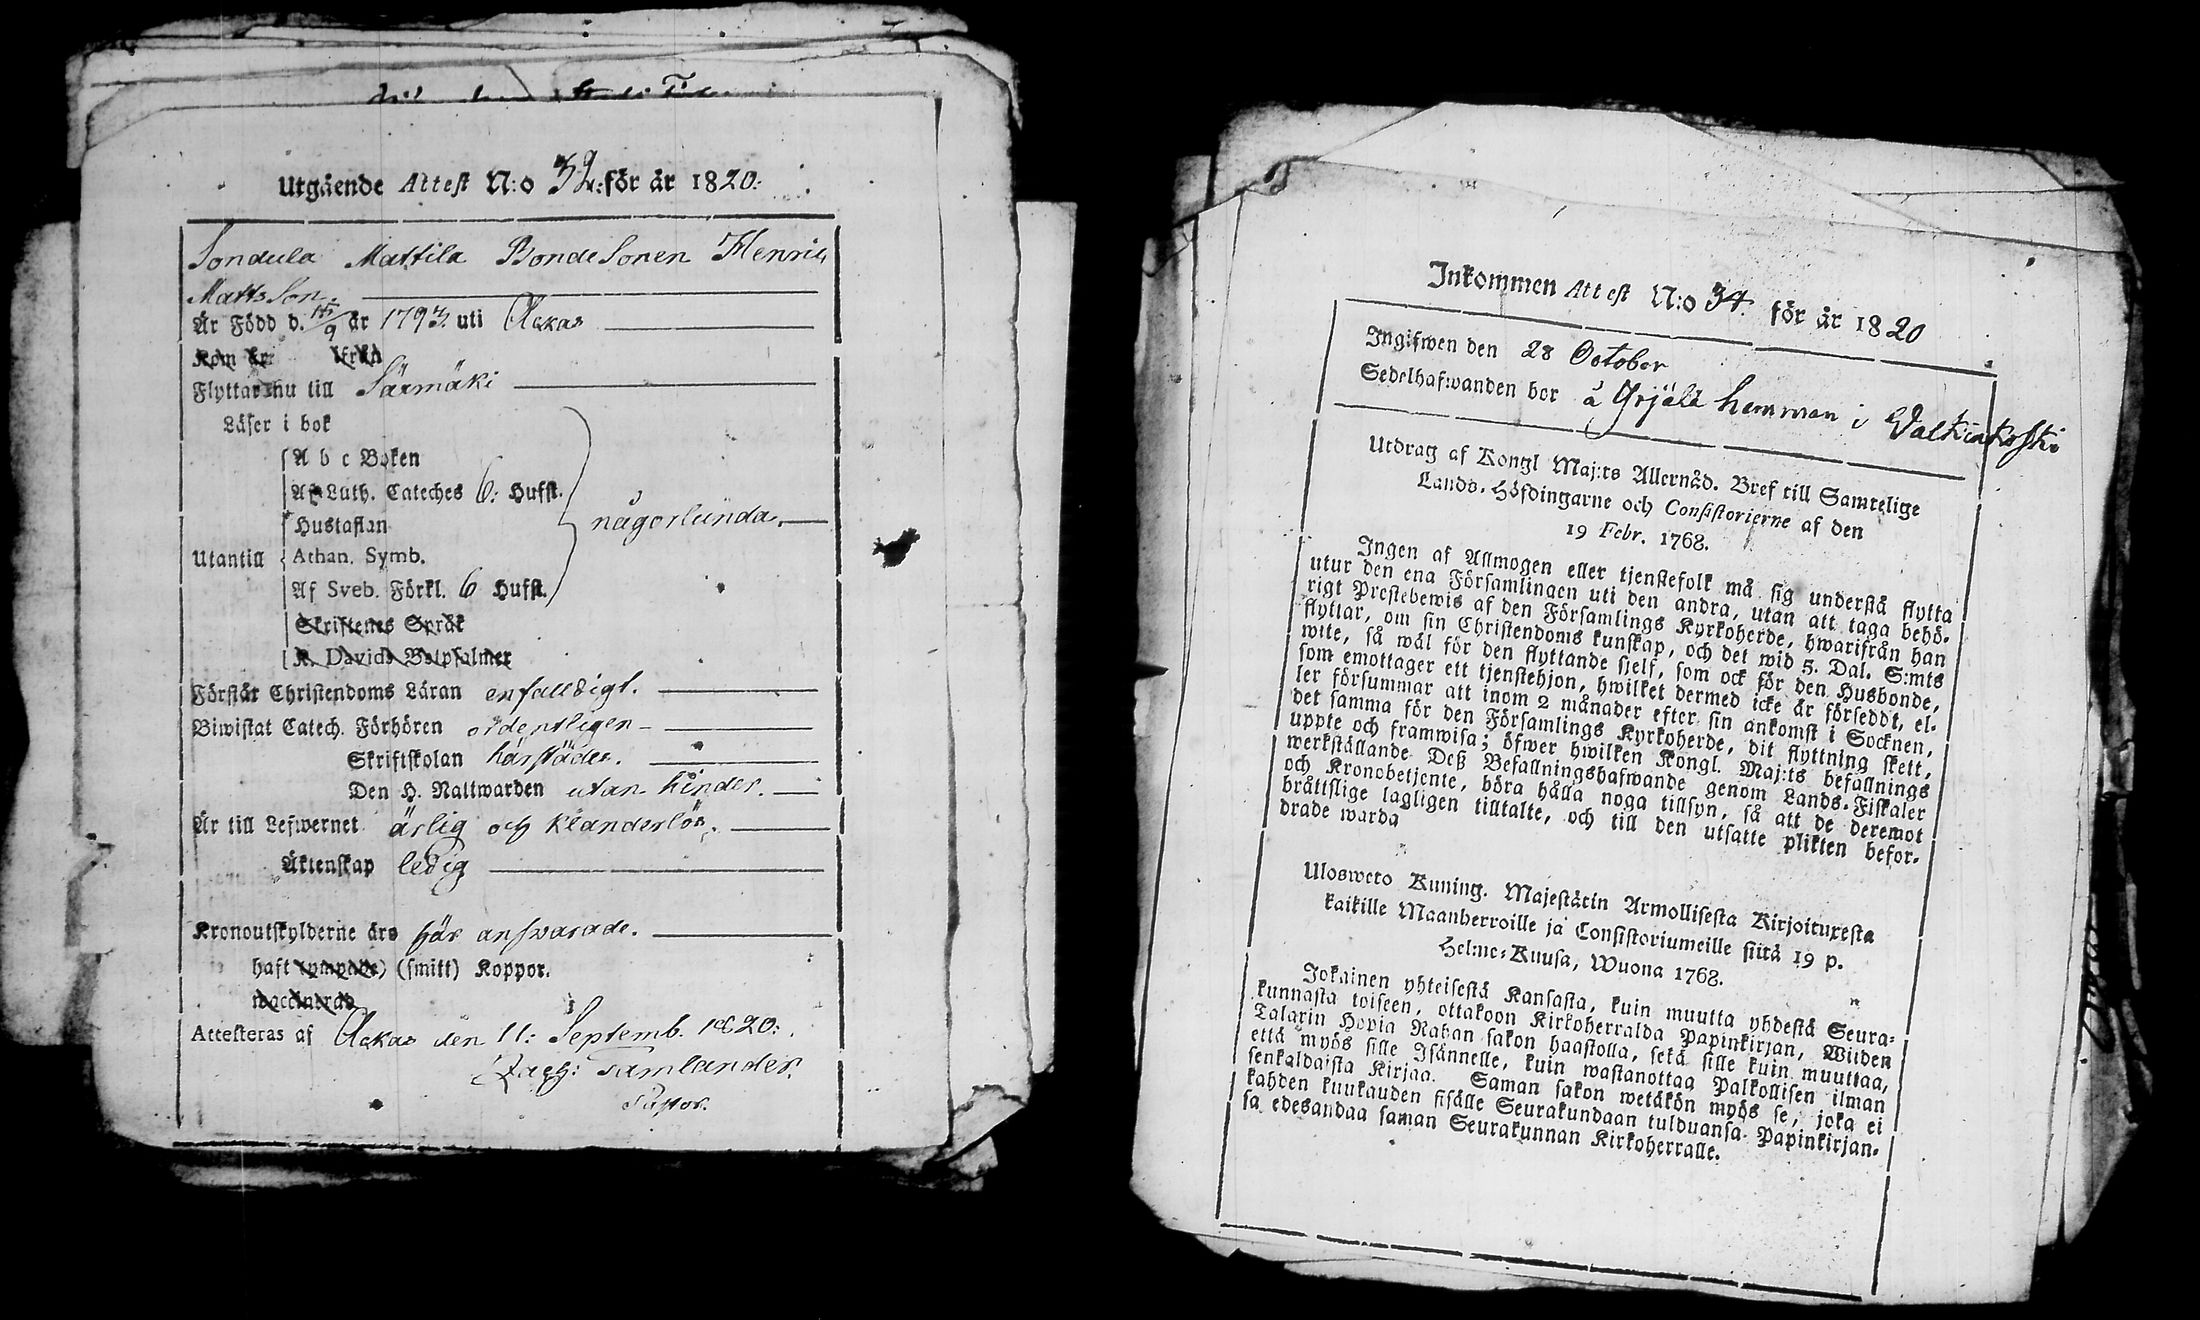 Utgående Attest N:o 32. för år 1820.
Sondula Mattila BondeSonen Henric
MattsSon.
Är Född d. 15/9 år 1793. uti Ackas
Kom år ifrån
Flyttar nu till Särmäki
Läser i bok
A b c Boken
Af Luth. Cateches 6: Hufst.
Hustaflan
någorlunda.
Utantill Athan. Symb.
Af Sveb. Förkl. 6 Hufst.
Skriftenes Språk
K. Davids Botpsalmer
Förstår Christendoms Läran enfalldigt.
Biwistat Catech. Förhören ordentligen
Skriftskolan härstädes.
Den H. Nattwarden utan hinder.
Är till Lefwernet ärlig och klanderlös.
Äktenskap ledig
Kronoutskylderne äro här answarade.
haft (ympade) (smitt) Koppor.
waccinerad
Attesteras af Ackas den 11: Septemb. 1820:
Zach: Tamlander.
Pastor.
Inkommen Attest N:o 34. för år 1820
Ingifwen den 28 October
Sedelhafwanden bor å Yrjälä hemman i Valkiakoski
Utdrag af Kongl Maj:ts Allernåd. Bref till Samtelige
Lands-Höfdingarne och Consistorierne af den
19 Febr. 1768.
Ingen af Allmogen eller tjenstefolk må sig understå flytta
utur den ena Församlingen uti den andra, utan att taga behö-
rigt Prestebewis af den Församlings Kyrkoherde, hwarifrån han
flyttar, om sin Christendoms kunskap, och det wid 5. Dal. S:mts
wite, så wäl för den flyttande sjelf, som ock för den Husbonde,
som emottager ett tjenstehjon, hwilket dermed icke är försedt, el-
ler försummar att inom 2 månader efter sin ankomst i Socknen,
det samma för den Församlings Kyrkoherde, dit flyttning skett,
uppte och framwisa; öfwer hwilken Kongl. Maj:ts befallnings
werkställande Deß Befallningshafwande genom Lands-Fiskaler
och Kronobetjente, böra hålla noga tillsyn, så att de deremot
bråttslige lagligen tilltalte, och till den utsatte plikten befor-
drade warda
Ulosweto Kuning. Majestätin Armollisesta Kirjoituxesta
kaikille Maanherroille ja Consistoriumeille siitä 19 p.
Helme-Kuusa, Wuona 1768.
Jokainen yhteisestä Kansasta, kuin muutta yhdestä Seura-
kunnasta toiseen, ottakoon Kirkoherralda Papinkirjan, Wiiden
Talarin Hopia Rahan sakon haastolla, sekä sille kuin muuttaa,
että myös sille Isännelle, kuin wastanottaa Palkollisen ilman
senkaldaista Kirjaa. Saman sakon wetäkön myös se, joka ei
kahden kuukauden sisälle Seurakundaan tulduansa Papinkirjan-
sa edesandaa saman Seurakunnan Kirkoherralle.